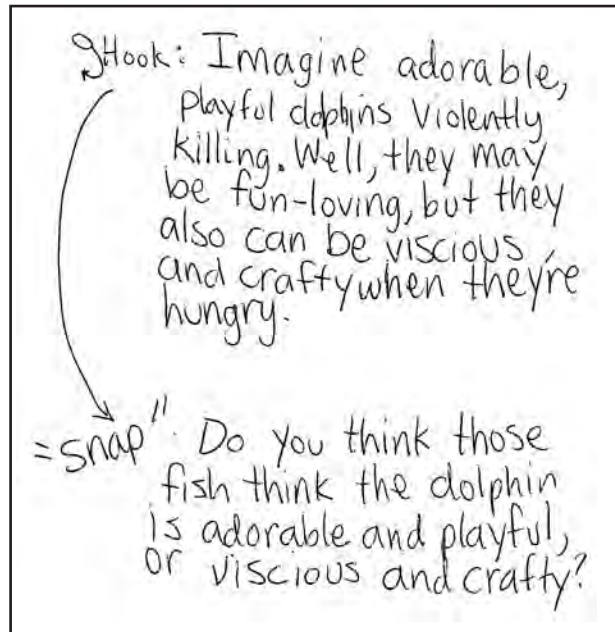 Hook: Imagine adorable,
playful dolphins violently
killing. Well, they may
be fun-loving, but they
also can be viscious
and crafty when they're
hungry.
"snap" Do you think those
fish think the dolphin
is adorable and playful,
or viscious and crafty?